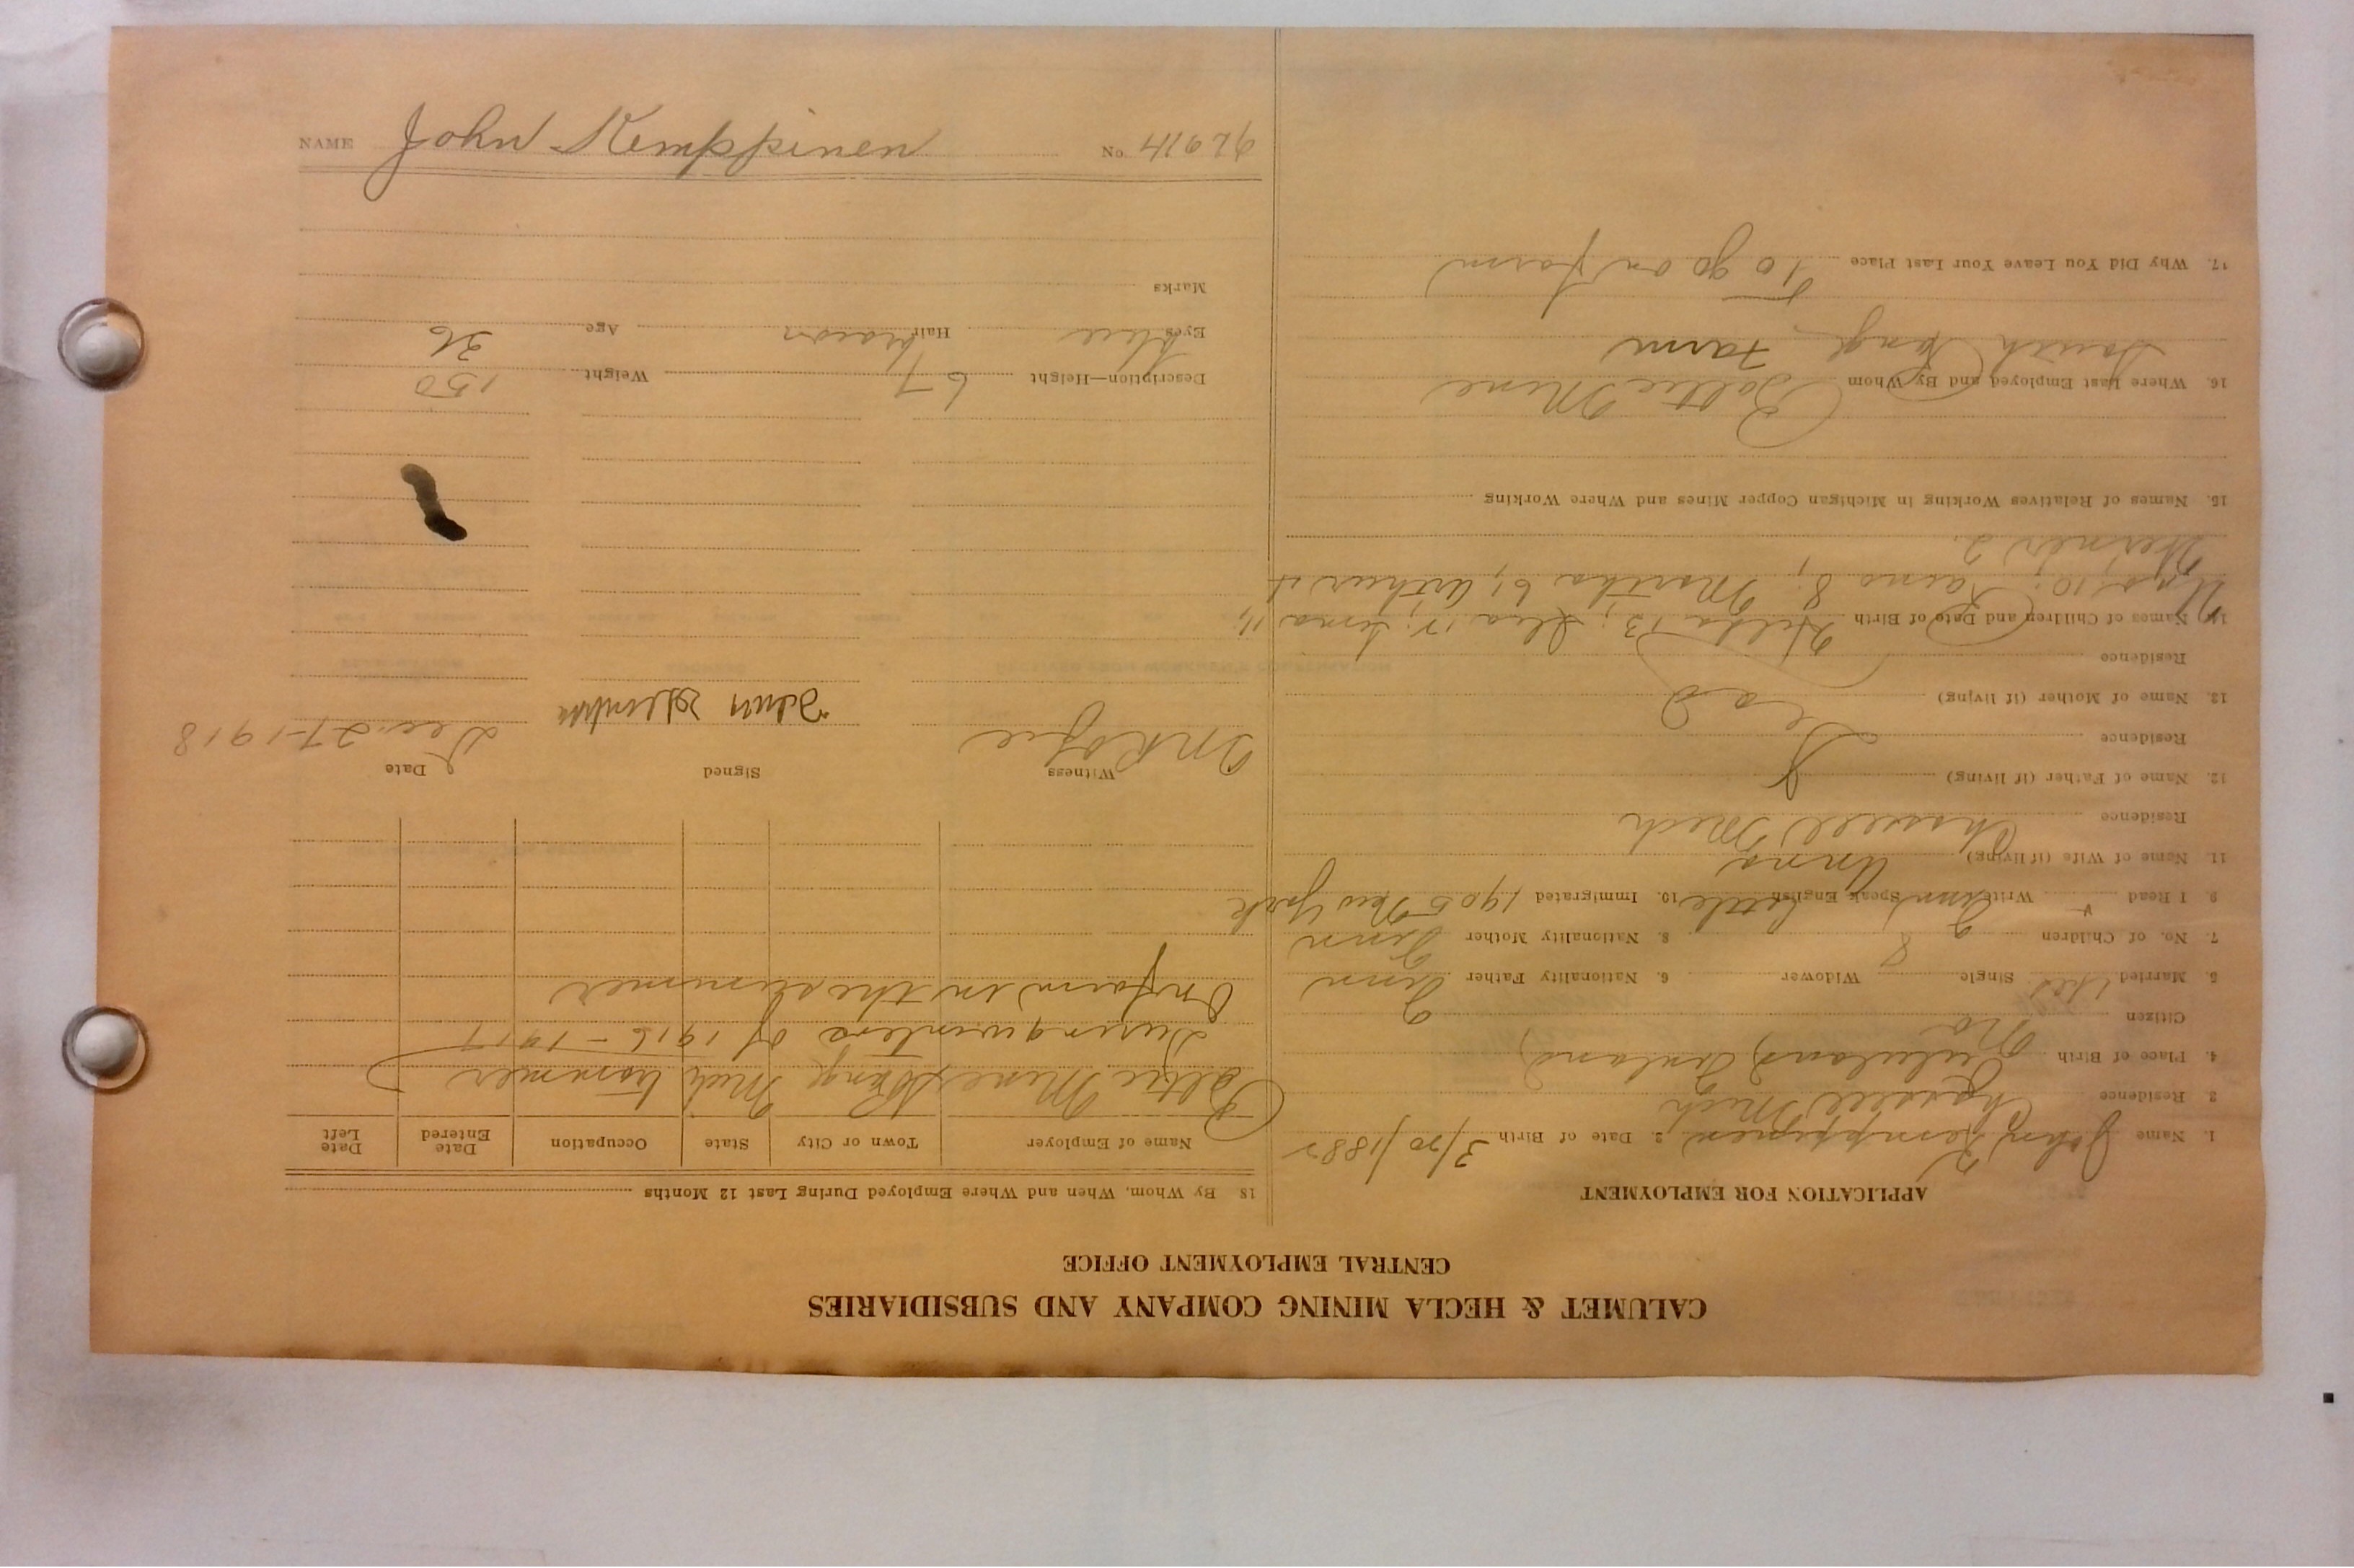 CALUMET & HECLA MINING COMPANY AND SUBSIDIARIES
CENTRAL EMPLOYMENT OFFICE
APPLICATION FOR EMPLOYMENT
1. Name John Kemppinen 2. Date of Birth 3/20/1882
3. Residence Chassell Mich
4. Place of Birth Finland
Citizen No
5. Married Yes Single Widower 6. Nationality Father Finn
7. No. of Children 8 8. Nationality Mother Finn
9. I Read Write Finn Speak English little 10. Immigrated 1905 New York
11. Name of Wife (if living) Anna
Residence Chassell Mich
12. Name of Father (if living)
Residence
13. Name of Mother (if living) Dead
Residence
14. Names of Children and Date of Birth Hilda 13; 12; 11;
10; 8; Martha 6; Arthur 4
2.
15. Names of Relatives Working in Michigan Copper Mines and Where Working
16. Where Last Employed and By Whom Baltic Mine
South Range Farm
17. Why Did You Leave Your Last Place To go on farm
18 By Whom, When and Where Employed During Last 12 Months
Name of Employer Town or City State Occupation Date Entered Date Left
Baltic Mine S Range Mich trammer
During winters of 1916-1917
On farm in the summer
Witness Signed Date
Dec. 27-1918
Description—Height 67 Weight 150
Eyes blue Hair brown Age 36
Marks
NAME John Kemppinen No.